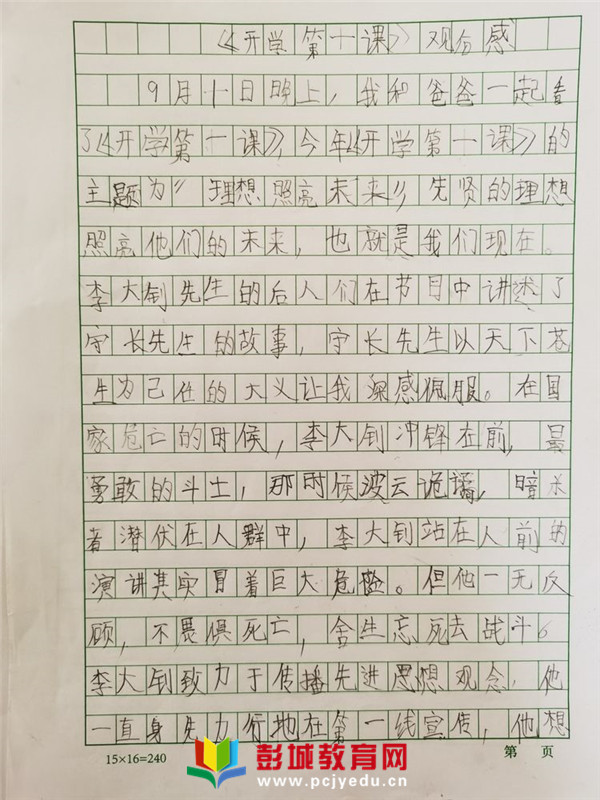 《开学第一课》观后感
9月十日晚上，我和爸爸一起看
了《开学第一课》，今年《开学第一课》的
主题为“理想照亮未来”先贤的理想
照亮他们的未来，也就是我们现在。
李大钊先生的后人们在节目中讲述了
守长先生的故事，守长先生以天下苍
生为己任的大义让我深感佩服。在国
家危亡的时候，李大钊冲锋在前，是
勇敢的斗士，那时候波云诡谲，暗杀
者潜伏在人群中，李大钊站在人前的
演讲其实冒着巨大危险。但他一无反
顾，不畏惧死亡，舍生忘死去战斗。
李大钊致力于传播先进思想观念，他
一直身先力行地在第一线宣传，他想
15×16=240
第 页
彭城教育网
www.pcjyedu.cn